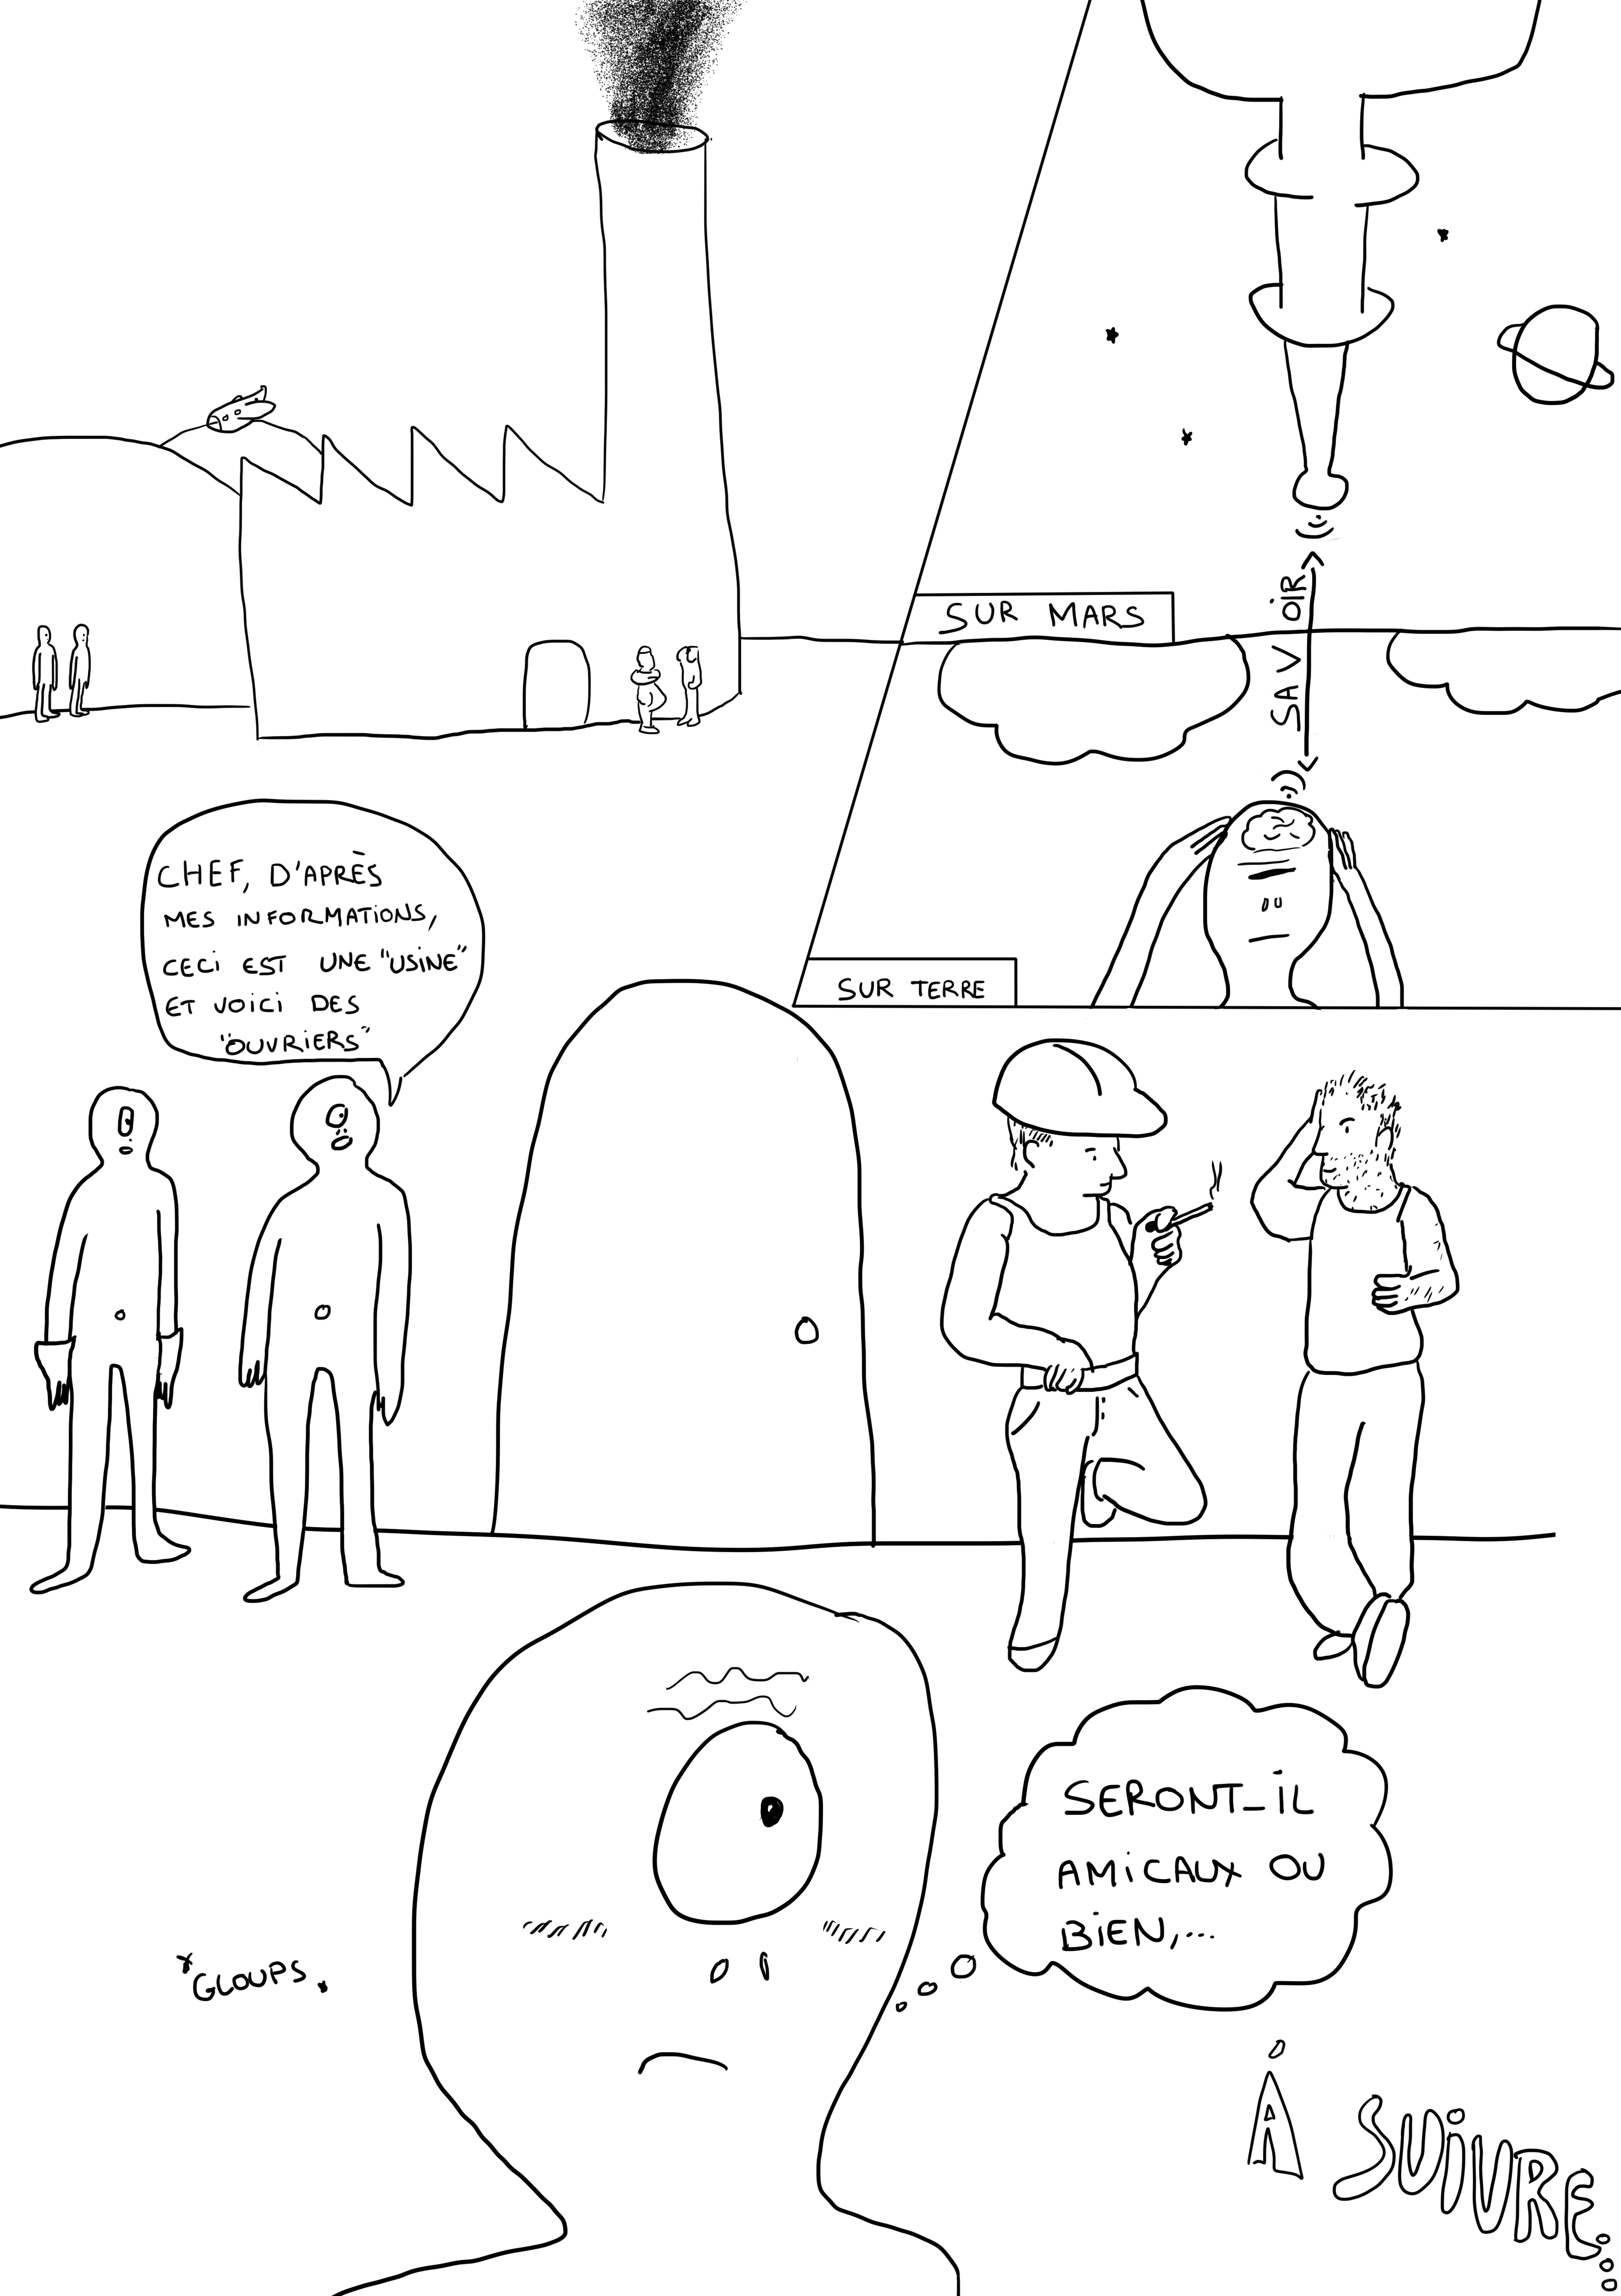 SUR MARS
SAVOIR
SUR TERRE
CHEF, D'APRÈS
MES INFORMATIONS,
CECI EST UNE "USINE"
ET VOICI DES
"OUVRIERS"
SERONT-IL
AMICAUX OU
BIEN,...
*GLOUPS*
À SUIVRE...